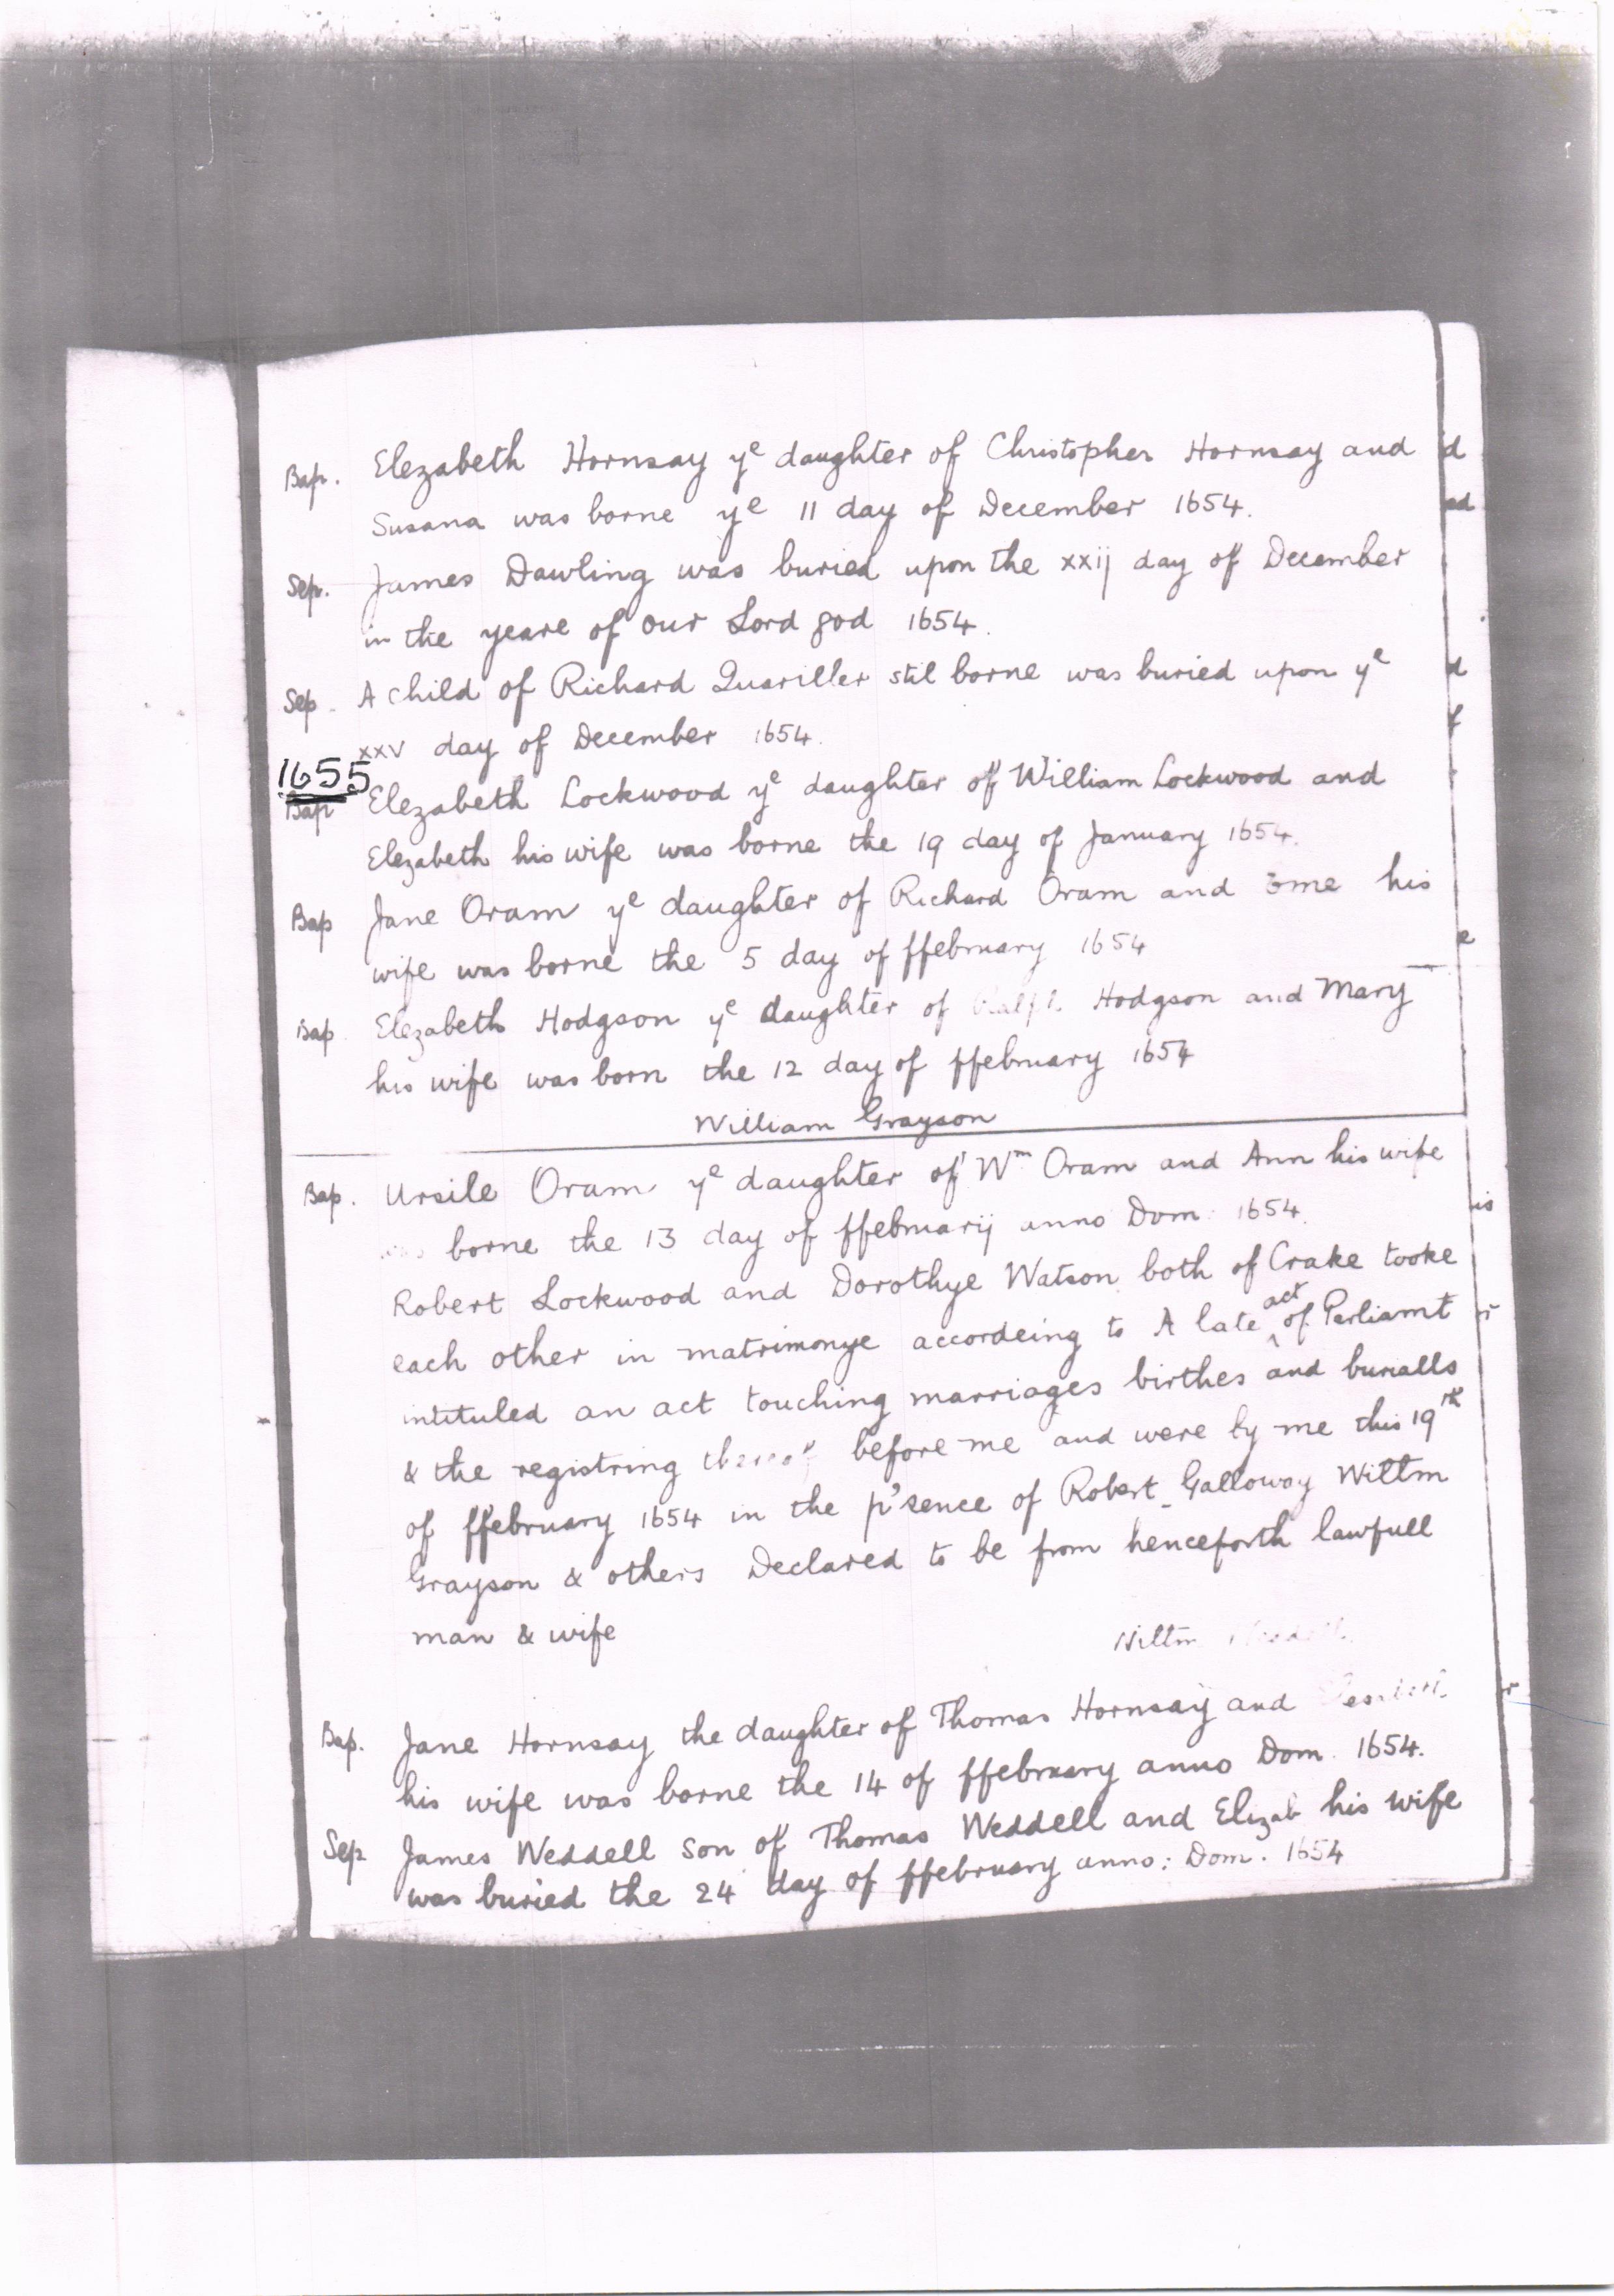 Bap. Elezabeth Hornsay yᵉ daughter of Christopher Hornsay and
Susana was borne yᵉ 11 day of December 1654.
Sep. James Dawling was buried upon the xxij day of December
in the yeare of our Lord god 1654.
Sep. A child of Richard Quariller stil borne was buried upon yᵉ
xxv day of December 1654.
1655
Bap Elezabeth Lockwood yᵉ daughter of William Lockwood and
Elezabeth his wife was borne the 19 day of January 1654.
Bap Jane Oram yᵉ daughter of Richard Oram and his
wife was borne the 5 day of ffebruary 1654
Bap Elezabeth Hodgson yᵉ daughter of Hodgson and Mary
his wife was born the 12 day of ffebruary 1654
William Grayson
Bap. Ursile Oram yᵉ daughter of Wᵐ Oram and Ann his wife
was borne the 13 day of ffebruarij anno Dom: 1654.
Robert Lockwood and Dorothye Watson both of Crake tooke
each other in matrimonye accordeing to A late act of Parliamt
intituled an act touching marriages birthes and burialls
& the registring thereof before me and were by me this 19ᵗʰ
of ffebruary 1654 in the p'sence of Robert Galloway Willm
Grayson & others Declared to be from henceforth lawfull
man & wife
Willm
Bap. Jane Hornsay the daughter of Thomas Hornsay and
his wife was borne the 14 of ffebruary anno Dom. 1654.
Sep James Weddell son of Thomas Weddell and Elizab his wife
was buried the 24 day of ffebruary anno: Dom. 1654